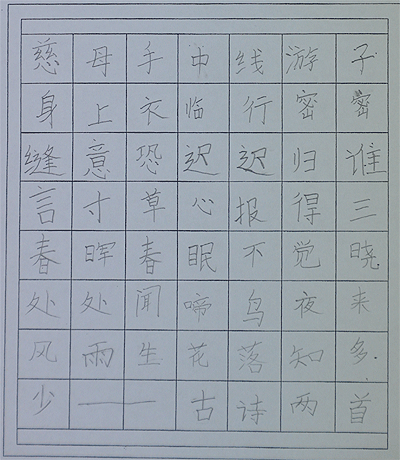 慈母手中线游子
身上衣临行密密
缝意恐迟迟归谁
言寸草心报得三
春晖春眠不觉晓
处处闻啼鸟夜来
风雨生花落知多
少——古诗两首